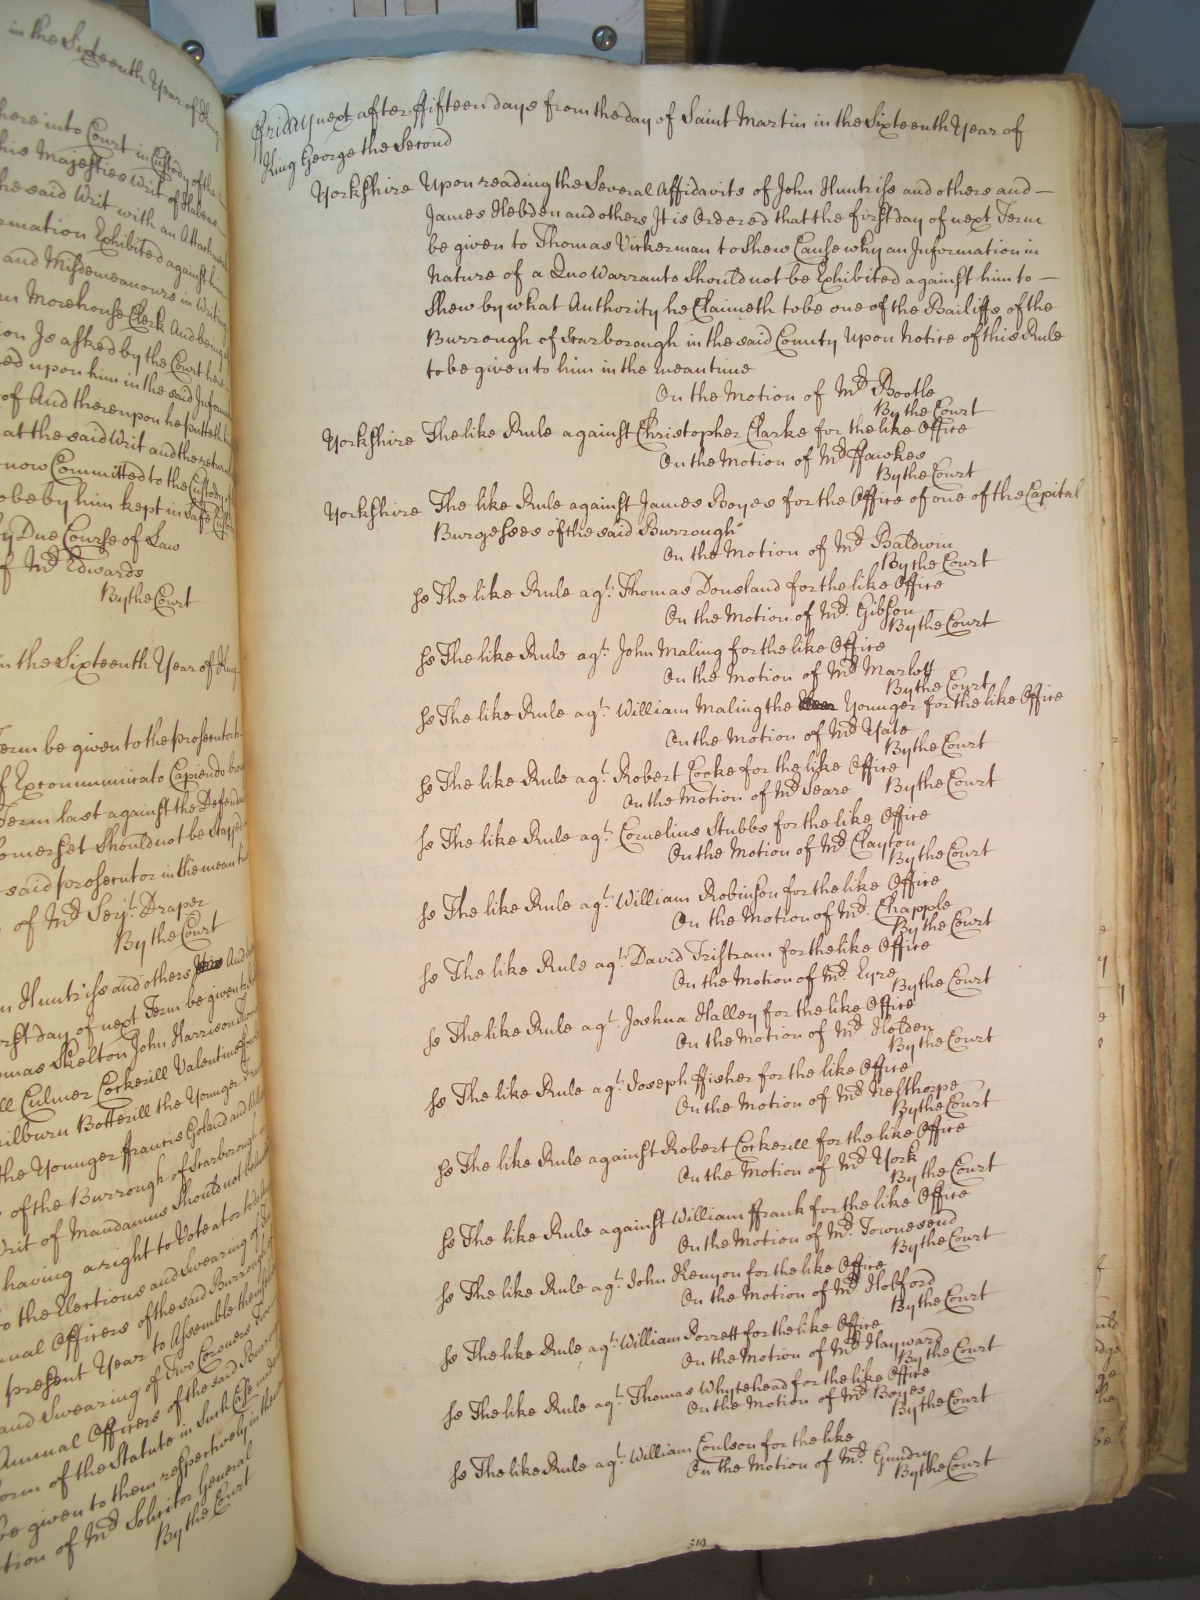 in the Sixteenth Year of King
here into Court in Custody of the
his Majesties Writ of Habeas
he said Writ with an Attachment
rmation Exhibited against him
and Misdemeanours in Writing
Morehouse Clerk And being
ion Is asked by the Court here
ed upon him in the said Inform
of And thereupon he putteth
at the said Writ and the return
now Committed to the Custody of
o be by him kept in Safe Cust
y Due Course of Law
f Mr. Edwards
By the Court
in the Sixteenth Year of King
Term be given to the prosecutor
f Excommunicato Capiendo
Term last against the Defend
omerset Should not be Stayed
said prosecutor in the mean time
of Mr. Serjt. Draper
By the Court
n Huntriss and others And
rst day of next Term be given to
omas Skelton John Harrison Thom
ll Culmer Cockerill Valentine
ilburn Botterill the Younger
the Younger ffrancis Goland and
of the Burrough of Scarborough
Writ of Mandamus Should not
having a right to Vote at or to
o the Elections and Swearing of
nual Officers of the said Burrough
present Year to Assemble them
and Swearing of Two Coroners
Annual Officers of the said
orm of the Statute in Such Case made
be given to them respectively in the
tion of Mr. Solicitor General
By the Court
ffriday next after ffifteen days from the day of Saint Martin in the Sixteenth Year of
King George the Second
Yorkshire Upon reading the Several Affidavits of John Huntriss and others and —
James Hebden and others It is Ordered that the first day of next Term
be given to Thomas Vickerman to shew Cause why an Information in
Nature of a Quo Warranto Should not be Exhibited against him to —
Shew by what Authority he Claimeth to be one of the Bailiffs of the
Burrough of Scarborough in the said County Upon Notice of this Rule
to be given to him in the mean time
On the Motion of Mr. Bootle
By the Court
Yorkshire The like Rule against Christopher Clarke for the like Office
On the Motion of Mr. ffawkes
By the Court
Yorkshire The like Rule against James Boyes for the Office of one of the Capital
Burgesses of the said Burrough
On the Motion of Mr. Baldwin
By the Court
Ss The like Rule agt. Thomas Dousland for the like Office
On the Motion of Mr. Gibson
By the Court
Ss The like Rule agt. John Maling for the like Office
On the Motion of Mr. Marlott
By the Court
Ss The like Rule agt. William Maling the Younger for the like Office
On the Motion of Mr. Yate
By the Court
Ss The like Rule agt. Robert Cooke for the like Office
On the Motion of Mr. Seare By the Court
Ss The like Rule agt. Cornelius Stubbs for the like Office
On the Motion of Mr. Clayton
By the Court
Ss The like Rule agt. William Robinson for the like Office
On the Motion of Mr. Chapple
By the Court
Ss The like Rule agt. David Tristram for the like Office
On the Motion of Mr. Eyre
By the Court
Ss The like Rule agt. Joshua Halley for the like Office
On the Motion of Mr. Holden
By the Court
Ss The like Rule agt. Joseph ffisher for the like Office
On the Motion of Mr. Nesthorpe
By the Court
Ss The like Rule against Robert Cockerill for the like Office
On the Motion of Mr. York
By the Court
Ss The like Rule against William ffrank for the like Office
On the Motion of Mr. Townesend
By the Court
Ss The like Rule agt. John Kenyon for the like Office
On the Motion of Mr. Holford
By the Court
Ss The like Rule agt. William Porrett for the like Office
On the Motion of Mr. Hayward
By the Court
Ss The like Rule agt. Thomas Whytehead for the like Office
On the Motion of Mr. Boyes
By the Court
Ss The like Rule agt. William Coulson for the like
On the Motion of Mr. Gundry
By the Court
519